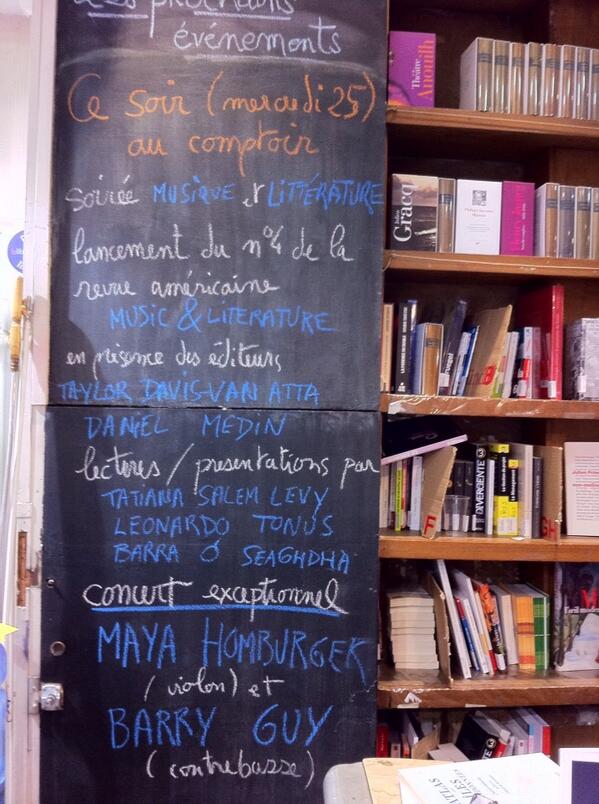 Les prochains
événements
Ce soir (mercredi 25)
au comptoir
soirée MUSIQUE et LITTÉRATURE
lancement du n°4 de la
revue américaine
MUSIC & LITERATURE
en présence des éditeurs
TAYLOR DAVIS-VAN ATTA
DANIEL MEDIN
lectures / présentations par
TATIANA SALEM LEVY
LEONARDO TONUS
BARRA Ó SEAGHDHA
concert exceptionnel
MAYA HOMBURGER
(violon) et
BARRY GUY
(contrebasse)
Théâtre
Anouilh
Julien
Gracq
DIVERGENTE 3
Le Management
B
F
GH
M
l'œil
ATLAS